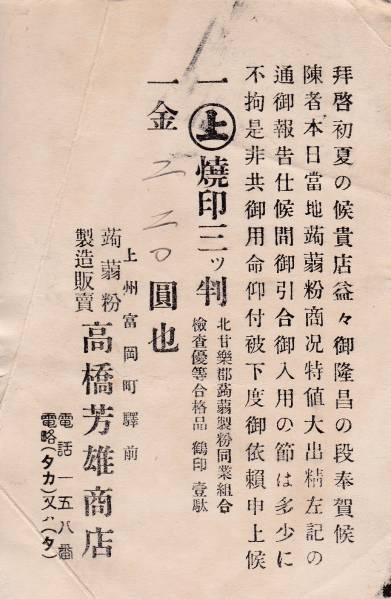 拜啓初夏の候貴店益々御隆昌の段奉賀候
陳者本日當地蒟蒻粉商況特値大出精左記の
通御報告仕候間御引合御入用の節は多少に
不拘是非共御用命仰付被下度御依賴申上候
一㊤燒印三ッ判
北甘樂郡蒟蒻製粉同業組合
檢査優等合格品 鶴印 壹駄
一金 二二〇圓也
上州富岡町驛前
蒟蒻粉
製造販賣
高橋芳雄商店
電話一五八番
電略(タカ)又ハ(タ)